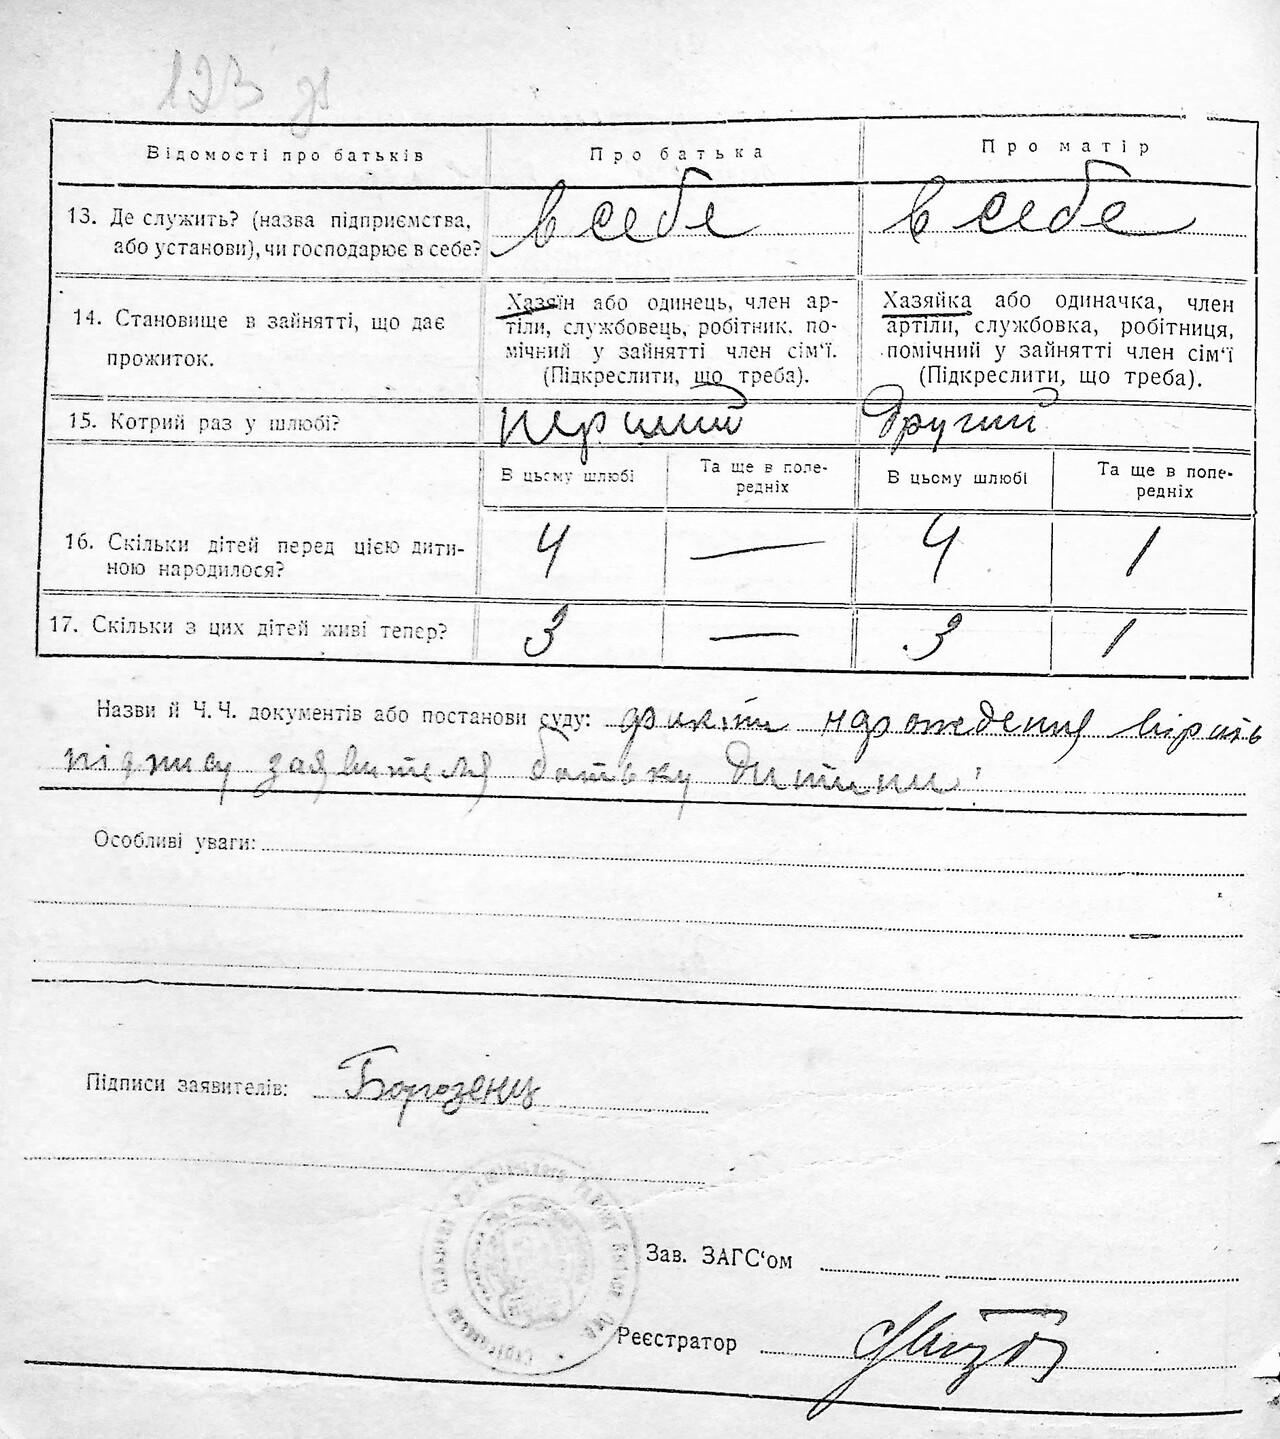 123
Відомості про батьків
Про батька
Про матір
13. Де служить? (назва підприємства,
або установи), чи господарює в себе?
в себе
в себе
14. Становище в зайнятті, що дає
прожиток.
Хазяїн або одинець, член ар-
тіли, службовець, робітник. по-
мічний у зайнятті член сім'ї.
(Підкреслити, що треба).
Хазяйка або одиначка, член
артіли, службовка, робітниця,
помічний у зайнятті член сім'ї
(Підкреслити, що треба).
15. Котрий раз у шлюбі?
перший
другий
В цьому шлюбі
Та ще в попе-
редніх
В цьому шлюбі
Та ще в попе-
редніх
16. Скільки дітей перед цією дити-
ною народилося?
4
—
4
1
17. Скільки з цих дітей живі тепер?
3
—
3
1
Назви й Ч. Ч. документів або постанови суду:
підпису заявителя батьку дитини
Особливі уваги:
Підписи заявителів: Борозенец
Зав. ЗАГС'ом
Реєстратор